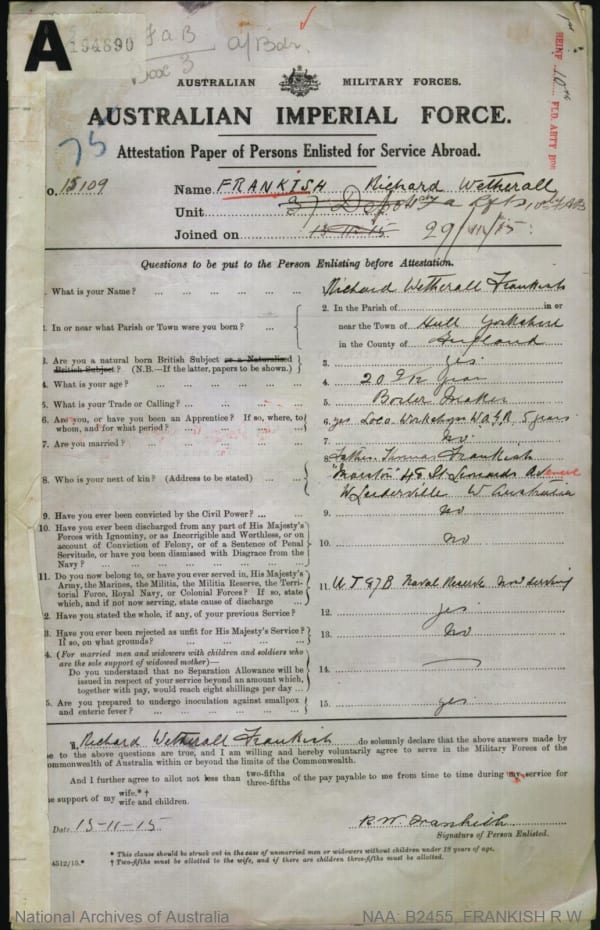 A
194890
F a B
a/Bdr.
Box 3
AUSTRALIAN MILITARY FORCES.
AUSTRALIAN IMPERIAL FORCE.
REINF 10th FLD. ARTY BDE
75
Attestation Paper of Persons Enlisted for Service Abroad.
o. 15109
Name FRANKISH Richard Wetherall
Unit 37 Depot
Joined on 13-11-15 29/11/15
Questions to be put to the Person Enlisting before Attestation.
. What is your Name? ... Richard Wetherall Frankish
. In or near what Parish or Town were you born? ... 2. In the Parish of in or
near the Town of Hull Yorkshire
in the County of England
. Are you a natural born British Subject or a Naturalized
British Subject? (N.B.—If the latter, papers to be shown.) 3. yes
. What is your age? ... 4. 20 9/12 years
. What is your Trade or Calling? ... 5. Boiler Maker
. Are you, or have you been an Apprentice? If so, where, to
whom, and for what period? ... 6. yes Loco Workshops W.A.G.R. 5 years
7. Are you married? ... 7. No
8. Who is your next of kin? (Address to be stated) ... 8. Father Thomas Frankish
"Marston" 45 St Leonards Avenue
W Leederville W Australia
9. Have you ever been convicted by the Civil Power? ... 9. No
10. Have you ever been discharged from any part of His Majesty's
Forces with Ignominy, or as Incorrigible and Worthless, or on
account of Conviction of Felony, or of a Sentence of Penal
Servitude, or have you been dismissed with Disgrace from the
Navy? ... 10. No
11. Do you now belong to, or have you ever served in, His Majesty's
Army, the Marines, the Militia, the Militia Reserve, the Terri-
torial Force, Royal Navy, or Colonial Forces? If so, state
which, and if not now serving, state cause of discharge ... 11. Naval Reserve now serving
2. Have you stated the whole, if any, of your previous Service? 12. yes
3. Have you ever been rejected as unfit for His Majesty's Service?
If so, on what grounds? ... 13. No
4. (For married men and widowers with children and soldiers who
are the sole support of widowed mother)—
Do you understand that no Separation Allowance will be
issued in respect of your service beyond an amount which,
together with pay, would reach eight shillings per day ... 14. —
5. Are you prepared to undergo inoculation against smallpox
and enteric fever? ... 15. yes
Richard Wetherall Frankish do solemnly declare that the above answers made by
e to the above questions are true, and I am willing and hereby voluntarily agree to serve in the Military Forces of the
ommonwealth of Australia within or beyond the limits of the Commonwealth.
And I further agree to allot not less than two-fifths three-fifths of the pay payable to me from time to time during my service for
e support of my wife.* † wife and children.
Date 13-11-15
R W Frankish
Signature of Person Enlisted.
* This clause should be struck out in the case of unmarried men or widowers without children under 18 years of age.
4512/15.* † Two-fifths must be allotted to the wife, and if there are children three-fifths must be allotted.
National Archives of Australia
NAA: B2455, FRANKISH R W